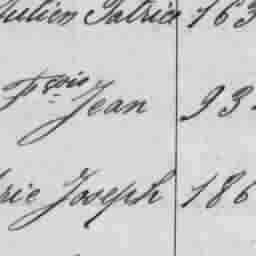 Julien Patrice 163
Fçois Jean 934
rie Joseph 186